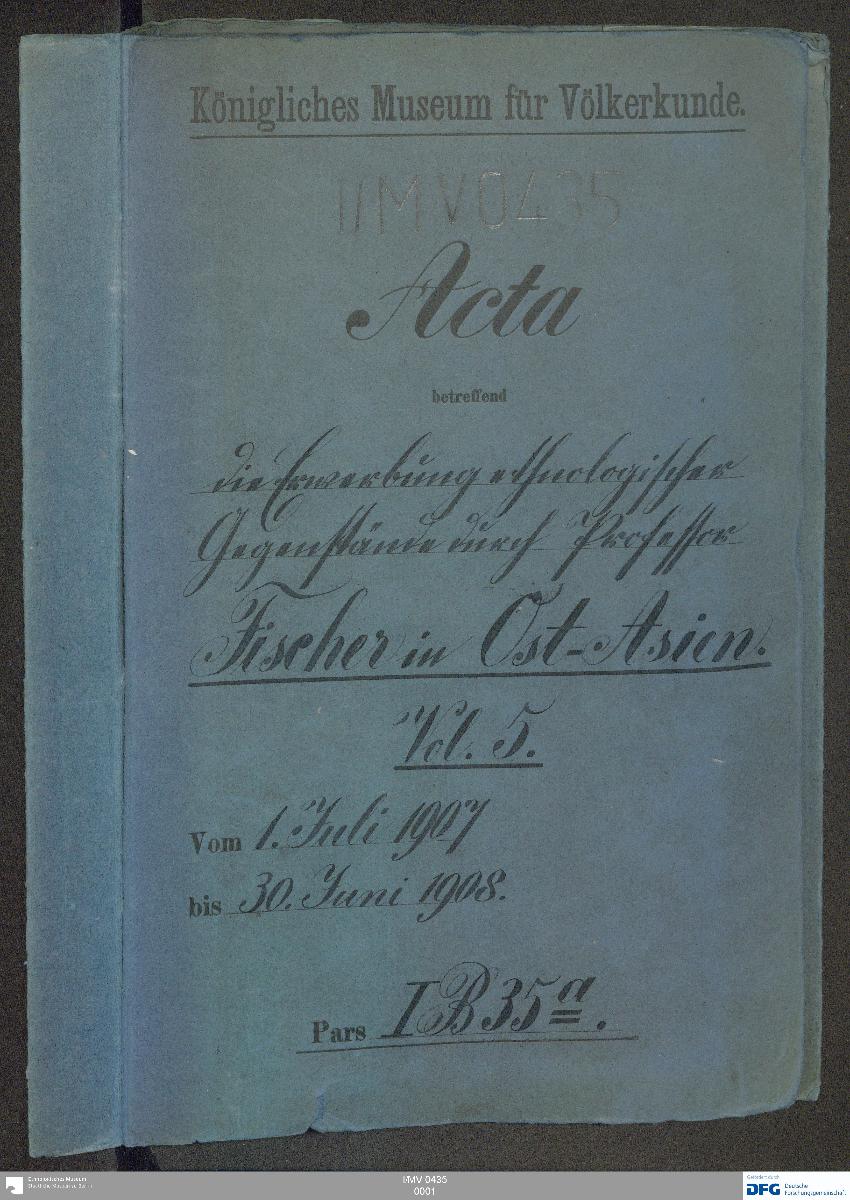 Königliches Museum für Völkerkunde.
I/MV 0435
Acta
betreffend
die Erwerbung ethnologischer
Gegenstände durch Professor
Fischer in Ost-Asien.
Vol. 5.
Vom 1. Juli 1907
bis 30. Juni 1908.
Pars I B 35 a.
Ethnologisches Museum
Staatliche Museen zu Berlin
I/MV 0435
0001
Gefördert durch
DFG Deutsche
Forschungsgemeinschaft